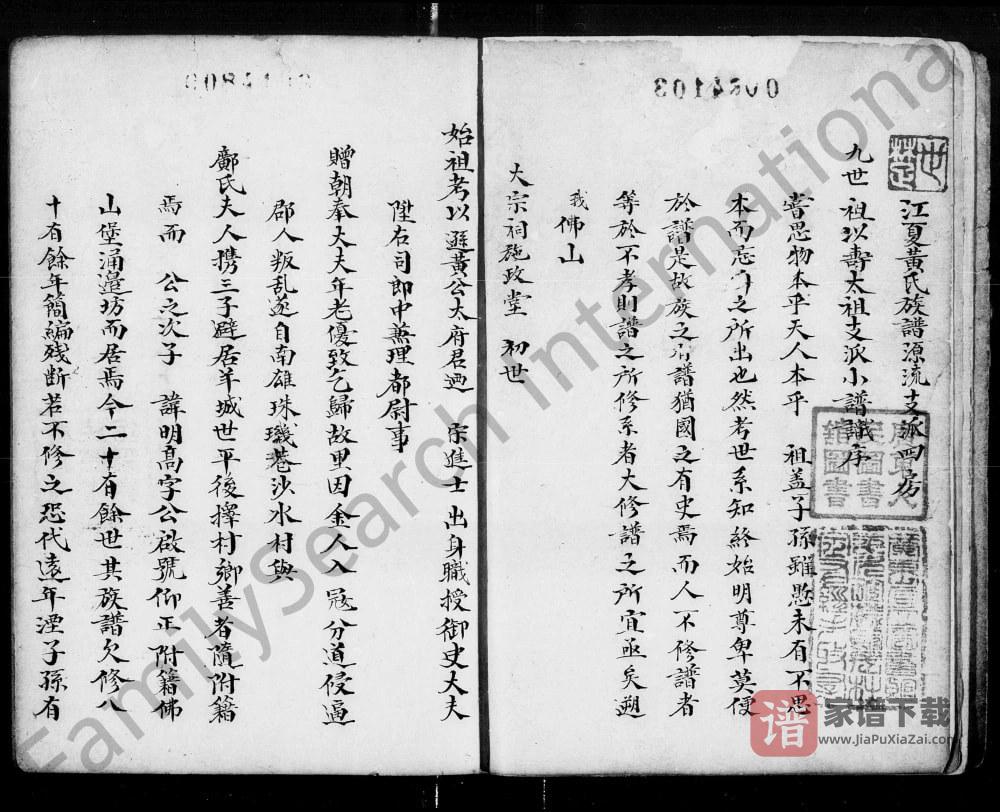 江夏黃氏族譜源流支派四房
九世祖以壽太祖支派小譜譏序
嘗思物本乎天人本乎 祖蓋子孫雖愚未有不思
本而忘之所出也然考世系知終始明尊卑莫便
於譜是故族之有譜猶國之有史焉而人不修譜者
等於不孝則譜之所修系者大修譜之所宜亟矣朔
我佛山
大宗祠施政堂 初世
始祖考以遜黃公太府君迺 宗進士出身職授御史大夫
陞右司郎中兼理都尉事
贈朝奉大夫年老優致乞歸故里因金人入冦分道侵逼
郡人叛乱遂自南雄珠璣巷沙水村與
鄺氏夫人携三子避居羊城世平後擇村鄉善者隨附籍
焉而 公之次子 諱明高字公啟號仰正附籍佛
山堡涌邉坊而居焉今二十有餘世其族譜欠修八
十有餘年簡編残断若不修之恐代遠年湮子孫有
0084103
FamilySearch International
谱 家谱下载
www.JiaPuXiaZai.com